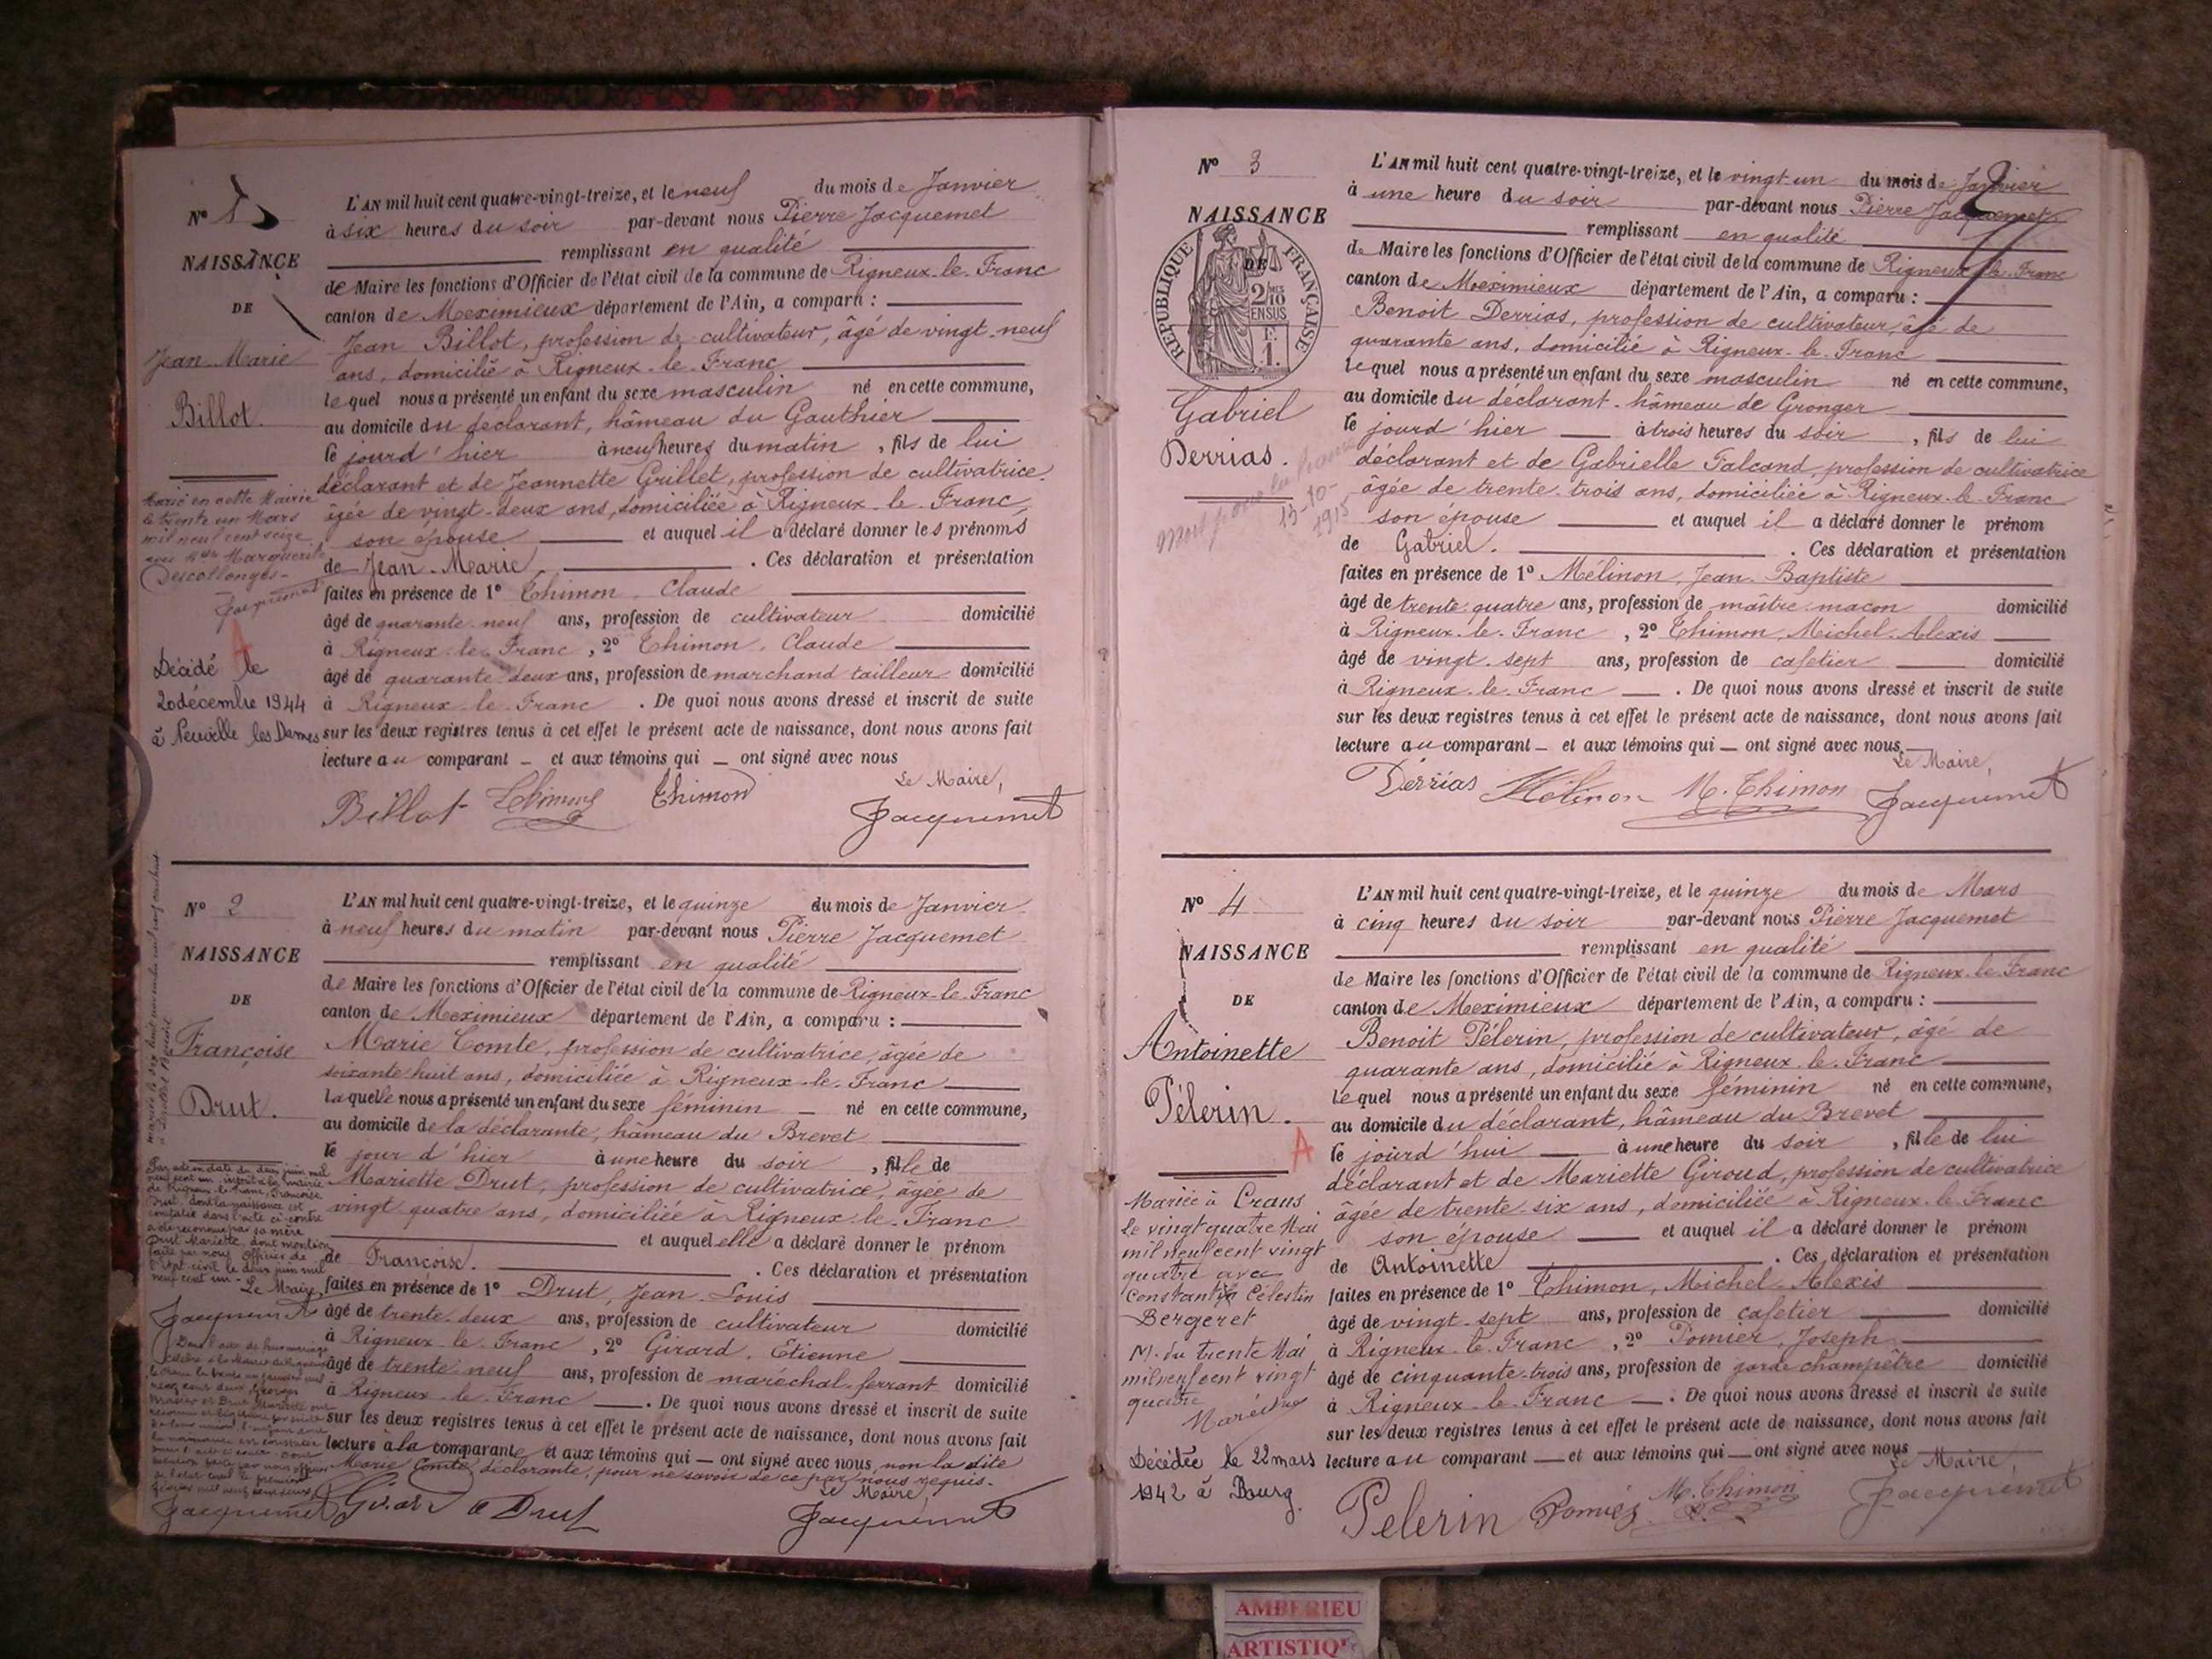 N° 1
NAISSANCE
DE
Jean Marie
Billot.
Marié en cette Mairie
le trente un Mars
mil neuf cent seize
avec Marguerite
Descollonges
Jacquemet
A
Décédé le
20 décembre 1944
à Neuville les Dames
L'AN mil huit cent quatre-vingt-treize, et le neuf du mois de Janvier
à six heures du soir par-devant nous Pierre Jacquemet
remplissant en qualité
de Maire les fonctions d'Officier de l'état civil de la commune de Rigneux-le-Franc
canton de Meximieux département de l'Ain, a comparu :
Jean Billot, profession de cultivateur, âgé de vingt-neuf
ans, domicilié à Rigneux-le-Franc
lequel nous a présenté un enfant du sexe masculin né en cette commune,
au domicile du déclarant, hâmeau du Gauthier
le jourd'hier à neuf heures du matin, fils de lui
déclarant et de Jeannette Grillet, profession de cultivatrice
âgée de vingt-deux ans, domiciliée à Rigneux-le-Franc,
son épouse et auquel il a déclaré donner les prénoms
de Jean-Marie. Ces déclaration et présentation
faites en présence de 1° Thimon, Claude
âgé de quarante-neuf ans, profession de cultivateur domicilié
à Rigneux-le-Franc, 2° Thimon, Claude
âgé de quarante-deux ans, profession de marchand tailleur domicilié
à Rigneux-le-Franc. De quoi nous avons dressé et inscrit de suite
sur les deux registres tenus à cet effet le présent acte de naissance, dont nous avons fait
lecture au comparant — et aux témoins qui — ont signé avec nous
Le Maire,
Billot Thimon Thimon Jacquemet
N° 2
NAISSANCE
DE
Françoise
Drut.
Par acte en date du deux juin mil
neuf cent un inscrit à la mairie
de Rigneux-le-Franc, Françoise
Drut, dont la naissance est
constatée dans l'acte ci-contre
a été reconnue par sa mère
Drut Mariette, dont mention
faite par nous Officier de
l'état civil le deux juin mil
neuf cent un - Le Maire,
Jacquemet
Jacquemet
L'AN mil huit cent quatre-vingt-treize, et le quinze du mois de Janvier
à neuf heures du matin par-devant nous Pierre Jacquemet
remplissant en qualité
de Maire les fonctions d'Officier de l'état civil de la commune de Rigneux-le-Franc
canton de Meximieux département de l'Ain, a comparu :
Marie Comte, profession de cultivatrice, âgée de
soixante-huit ans, domiciliée à Rigneux-le-Franc
laquelle nous a présenté un enfant du sexe féminin — né en cette commune,
au domicile de la déclarante, hâmeau du Brevet
le jour d'hier à une heure du soir, fille de
Mariette Drut, profession de cultivatrice, âgée de
vingt quatre ans, domiciliée à Rigneux-le-Franc
et auquel elle a déclaré donner le prénom
de Françoise. Ces déclaration et présentation
faites en présence de 1° Drut, Jean-Louis
âgé de trente-deux ans, profession de cultivateur domicilié
à Rigneux-le-Franc, 2° Girard, Étienne
âgé de trente-neuf ans, profession de maréchal-ferrant domicilié
à Rigneux-le-Franc. De quoi nous avons dressé et inscrit de suite
sur les deux registres tenus à cet effet le présent acte de naissance, dont nous avons fait
lecture à la comparante et aux témoins qui — ont signé avec nous, non la dite
Marie Comte, déclarante, pour ne savoir de ce par nous requis.
Le Maire,
Girard Drut Jacquemet
N° 3
NAISSANCE
DE
RÉPUBLIQUE FRANÇAISE
2/10 EN SUS
F. 1.
Gabriel
Derrias.
Mort pour la France
13-10-
1915
L'AN mil huit cent quatre-vingt-treize, et le vingt un du mois de Janvier
à une heure du soir par-devant nous Pierre Jacquemet
remplissant en qualité
de Maire les fonctions d'Officier de l'état civil de la commune de Rigneux-le-Franc
canton de Meximieux département de l'Ain, a comparu :
Benoit Derrias, profession de cultivateur, âgé de
quarante ans, domicilié à Rigneux-le-Franc
lequel nous a présenté un enfant du sexe masculin né en cette commune,
au domicile du déclarant, hâmeau de Gronger
le jourd'hier à trois heures du soir, fils de lui
déclarant et de Gabrielle Falcand, profession de cultivatrice
âgée de trente-trois ans, domiciliée à Rigneux-le-Franc
son épouse et auquel il a déclaré donner le prénom
de Gabriel. Ces déclaration et présentation
faites en présence de 1° Mélinon, Jean-Baptiste
âgé de trente-quatre ans, profession de maître-maçon domicilié
à Rigneux-le-Franc, 2° Thimon, Michel-Alexis
âgé de vingt-sept ans, profession de cafetier domicilié
à Rigneux-le-Franc. De quoi nous avons dressé et inscrit de suite
sur les deux registres tenus à cet effet le présent acte de naissance, dont nous avons fait
lecture au comparant — et aux témoins qui — ont signé avec nous,
Le Maire,
Derrias Mélinon M. Thimon Jacquemet
N° 4
NAISSANCE
DE
Antoinette
Pélerin.
A
Mariée à Crans
le vingt quatre Mai
mil neuf cent vingt
quatre avec
Constant Célestin
Bergeret
M. du trente Mai
mil neuf cent vingt
quatre
Décédée le 22 mars
1942 à Bourg.
L'AN mil huit cent quatre-vingt-treize, et le quinze du mois de Mars
à cinq heures du soir par-devant nous Pierre Jacquemet
remplissant en qualité
de Maire les fonctions d'Officier de l'état civil de la commune de Rigneux-le-Franc
canton de Meximieux département de l'Ain, a comparu :
Benoit Pélerin, profession de cultivateur, âgé de
quarante ans, domicilié à Rigneux-le-Franc
lequel nous a présenté un enfant du sexe féminin né en cette commune,
au domicile du déclarant, hâmeau du Brevet
le jourd'hui à une heure du soir, fille de lui
déclarant et de Mariette Giroud, profession de cultivatrice
âgée de trente-six ans, domiciliée à Rigneux-le-Franc
son épouse et auquel il a déclaré donner le prénom
de Antoinette. Ces déclaration et présentation
faites en présence de 1° Thimon, Michel-Alexis
âgé de vingt-sept ans, profession de cafetier domicilié
à Rigneux-le-Franc, 2° Pomier, Joseph
âgé de cinquante-trois ans, profession de garde champêtre domicilié
à Rigneux-le-Franc. De quoi nous avons dressé et inscrit de suite
sur les deux registres tenus à cet effet le présent acte de naissance, dont nous avons fait
lecture au comparant — et aux témoins qui — ont signé avec nous
Le Maire,
Pelerin Pomier M. Thimon Jacquemet
AMBERIEU
ARTISTIQUE